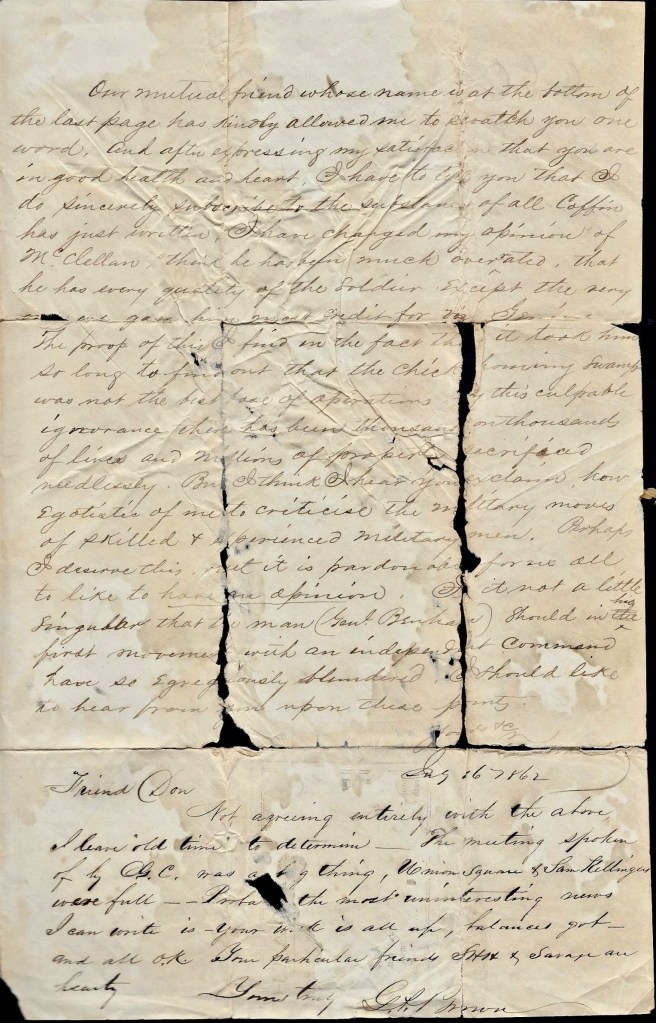 Our mutual friend whose name is at the bottom of
the last page has kindly allowed me to scratch you one
word. And after expressing my satisfac n that you are
in good health and heart, I have to tell you that I
do sincerely subscribe to the substance of all Coffin
has just written. I have changed my opinion of
McClellan think he has been much overrated, that
he has every quality of the Soldier except the very
one we gave him most credit for
The proof of this I find in the fact th it took him
so long to find out that the Chick homing Swamp
was not the best base of operations y this culpable
ignorance there has been thousands on thousands
of lives and Millions of property sacrificed
needlessly. But I think I hear you exclaim how
Egotistic of me to criticise the military moves
of skilled & experienced military men. Perhaps
I deserve this, but it is pardonable for us all
to like to have an opinion. I it not a little
Singular that the man (Genl Benham) Should in the his
first movement with an independent command
have so Egregiously blundered. I should like
to hear from you upon these points.
July 16 1862
Friend Don
Not agreeing entirely with the above
I leave "old time" to determine — The meeting spoken
of by G.C. was a big thing, Union Square &
were full — Proba the most uninteresting news
I can write is - Your work is all up, balances got —
and all O.K. Your particular friends & Savage are
hearty
Yours truly
Brown